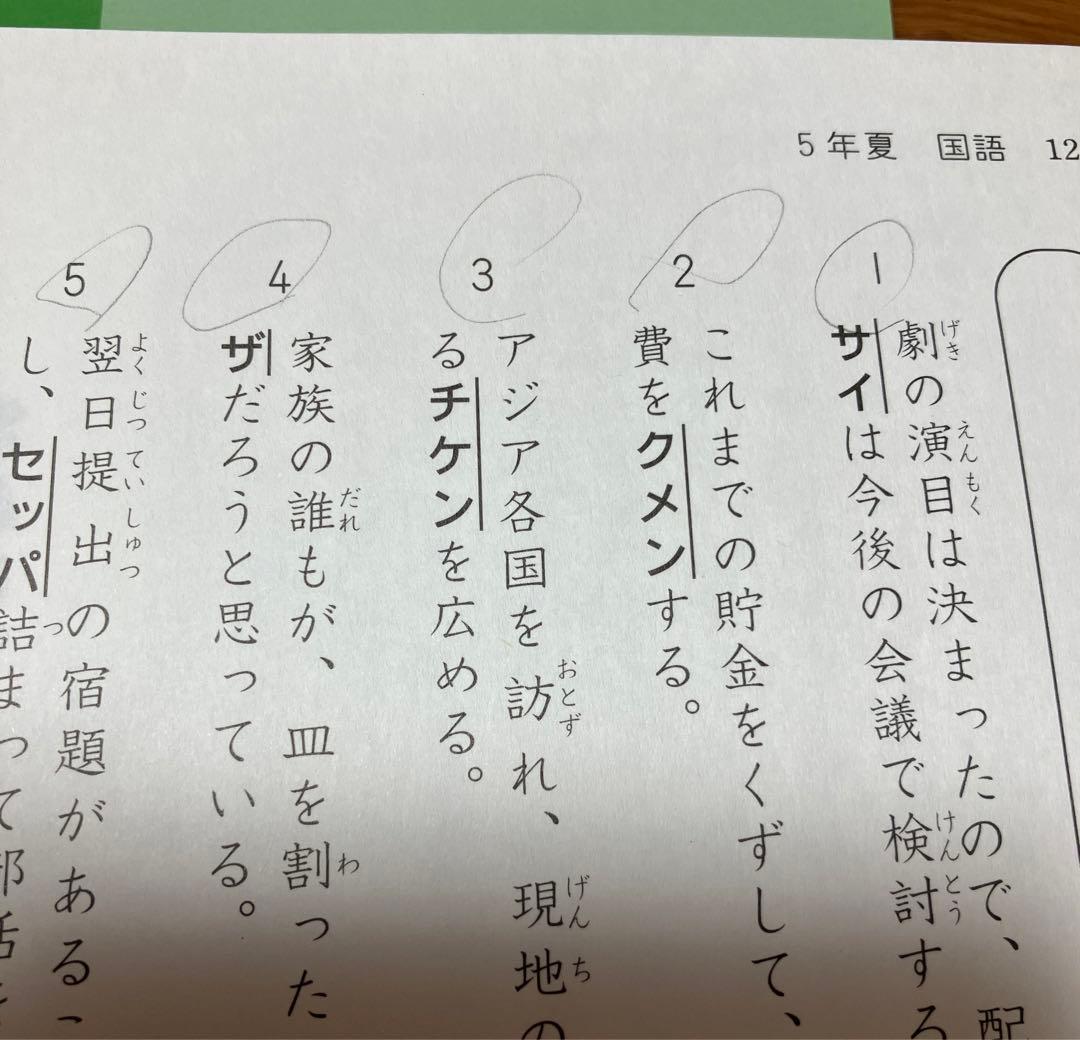 5年夏 国語 12
1
劇の演目は決まったので、配
サイは今後の会議で検討する
2
これまでの貯金をくずして、
費をクメンする。
3
アジア各国を訪れ、現地の
るチケンを広める。
4
家族の誰もが、皿を割った
ザだろうと思っている。
5
翌日提出の宿題がある
し、セッパ詰まって部活を